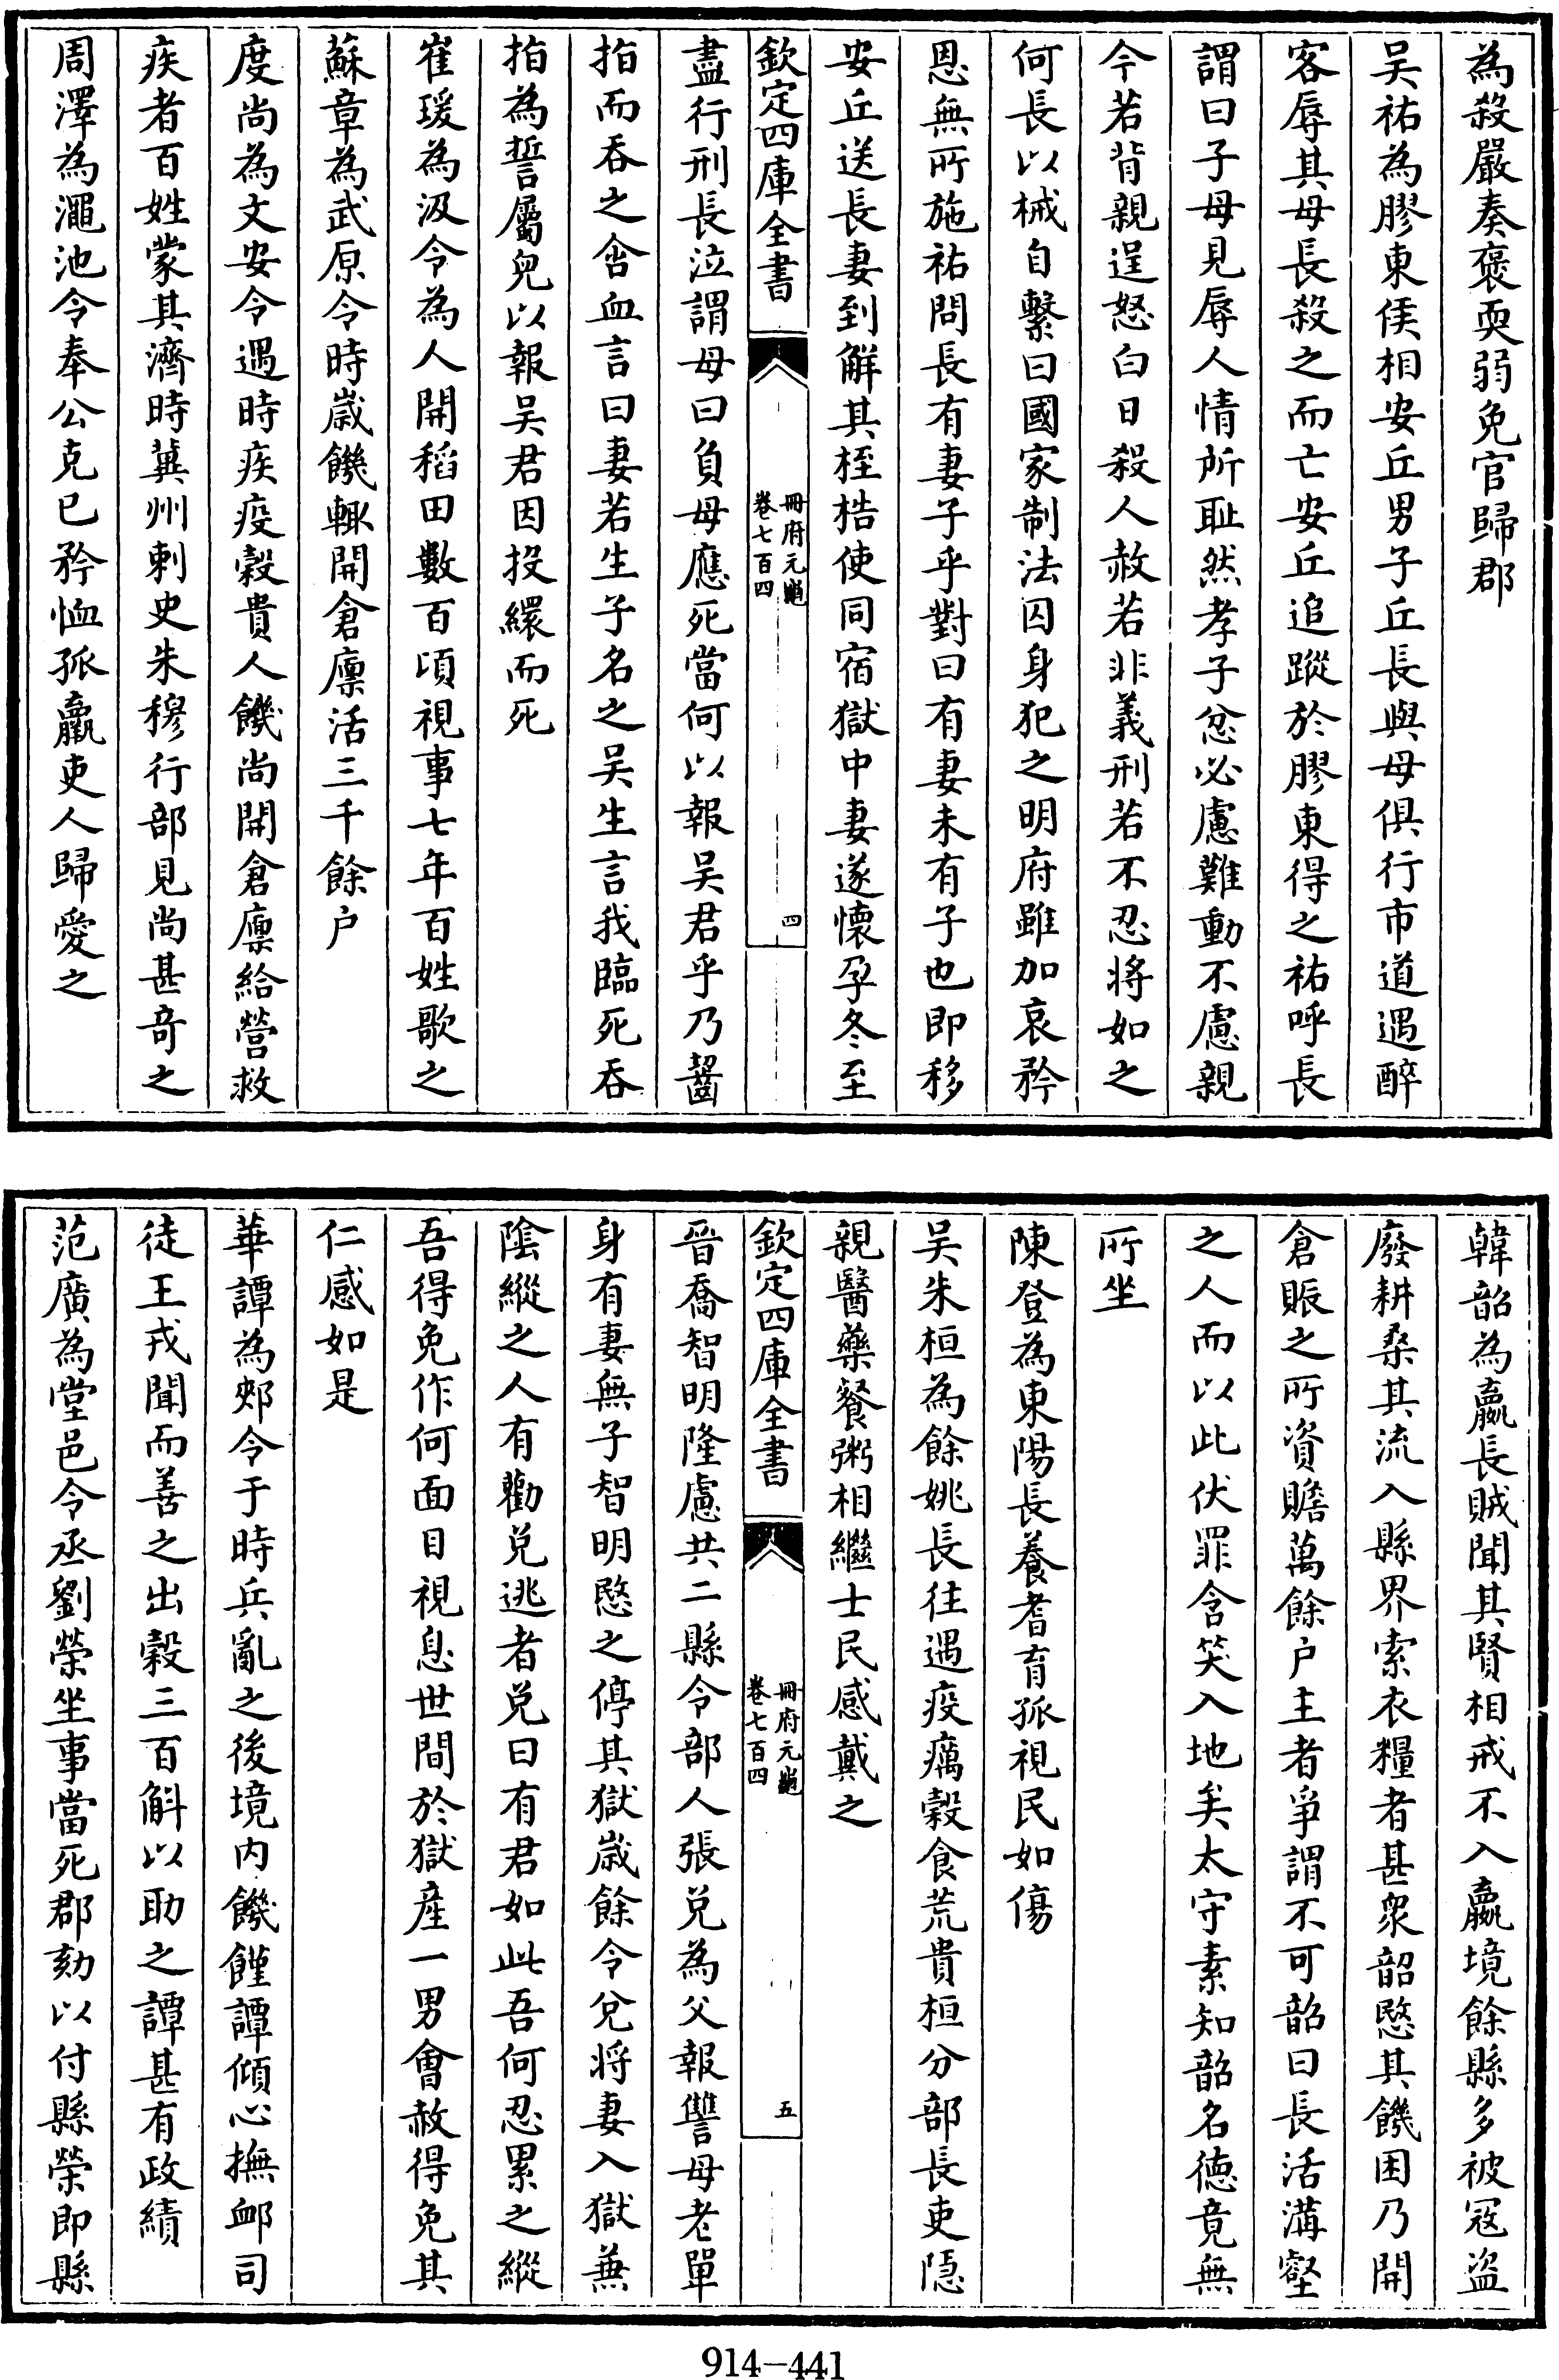 為殺嚴奏褒耎弱免官歸郡
吴祐為膠東侯相安丘男子丘長與母俱行市道遇醉
客辱其母長殺之而亡安丘追蹤於膠東得之祐呼長
謂曰子母見辱人情所耻然孝子忿必慮難動不慮親
今若背親逞怒白日殺人赦若非義刑若不忍將如之
何長以械自繫曰國家制法囚身犯之明府雖加哀矜
恩無所施祐問長有妻子乎對曰有妻未有子也即移
安丘送長妻到解其桎梏使同宿獄中妻遂懷孕冬至
欽定四庫全書
冊府元龜
卷七百四
四
盡行刑長泣謂母曰負母應死當何以報吴君乎乃齧
指而吞之含血言曰妻若生子名之吴生言我臨死吞
指為誓屬兒以報吴君因投繯而死
崔瑗為汲令為人開稻田數百頃視事七年百姓歌之
蘇章為武原令時歲饑輒開倉廩活三千餘户
度尚為文安令遇時疾疫穀貴人饑尚開倉廩給營救
疾者百姓蒙其濟時冀州刺史朱穆行部見尚甚奇之
周澤為澠池令奉公克已矜恤孤羸吏人歸愛之
韓韶為嬴長賊聞其賢相戒不入嬴境餘縣多被冦盗
廢耕桑其流入縣界索衣糧者甚衆韶愍其饑困乃開
倉賑之所資贍萬餘户主者爭謂不可韶曰長活溝壑
之人而以此伏罪含笑入地矣太守素知韶名徳竟無
所坐
陳登為東陽長養耆育孤視民如傷
吴朱桓為餘姚長往遇疫癘穀食荒貴桓分部長吏隱
親醫藥餐粥相繼士民感戴之
欽定四庫全書
冊府元龜
卷七百四
五
晉喬智明隆慮共二縣令部人張兑為父報讐母老單
身有妻無子智明愍之停其獄歲餘令兌將妻入獄兼
陰縱之人有勸兑逃者兑曰有君如此吾何忍累之縱
吾得免作何面目視息世間於獄産一男會赦得免其
仁感如是
華譚為郟令于時兵亂之後境内饑饉譚傾心撫䘏司
徒王戎聞而善之出穀三百斛以助之譚甚有政績
范廣為堂邑令丞劉榮坐事當死郡劾以付縣榮即縣
914-441